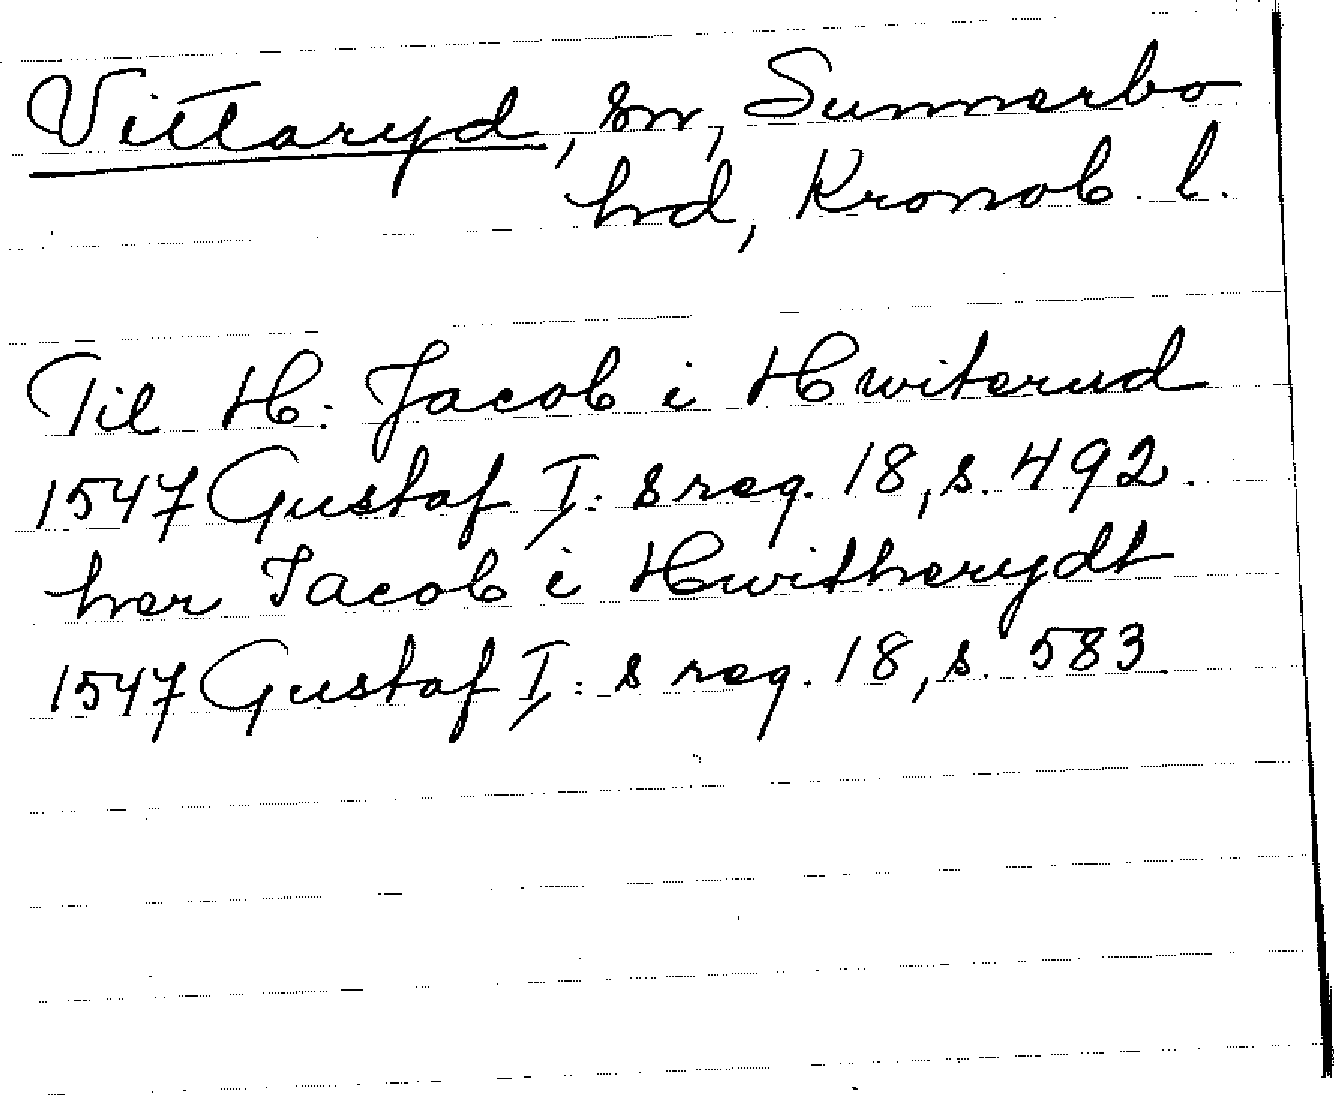 Vittaryd, sn, Sunnerbo
hd, Kronob. l.
Til H. Jacob i Hwiterud
1547 Gustaf I:s reg. 18, s. 492.
her Jacob i Hwitherydt
1547 Gustaf I:s reg. 18, s. 583